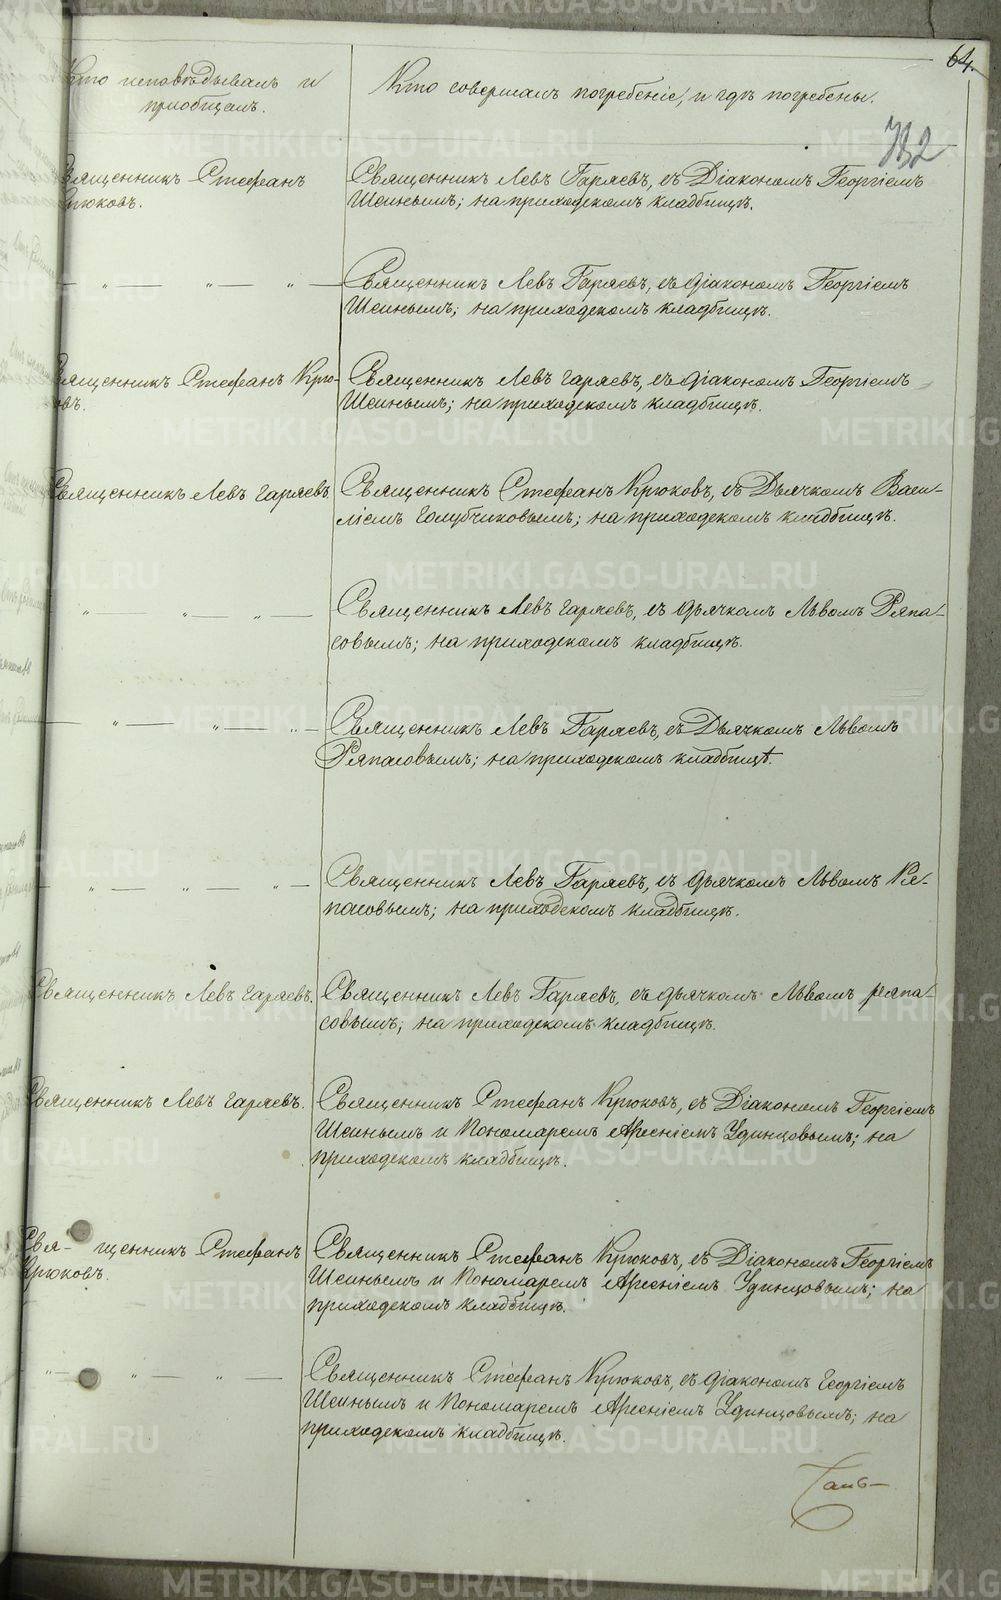 64.
732
Кто исповѣдывалъ и
приобщалъ.
Кто совершалъ погребеніе, и гдѣ погребены.
Священникъ Стефанъ
Крюковъ.
Священникъ Левъ Гаряевъ, съ Діакономъ Георгіемъ
Шеинымъ; на приходскомъ кладбищѣ.
— „ — „ — „ —
Священникъ Левъ Гаряевъ, съ діакономъ Георгіемъ
Шеинымъ; на приходскомъ кладбищѣ.
Священникъ Стефанъ Крю-
ковъ.
Священникъ Левъ Гаряевъ, съ діакономъ Георгіемъ
Шеинымъ; на приходскомъ кладбищѣ.
Священникъ Левъ Гаряевъ.
Священникъ Стефанъ Крюковъ, съ Дьячкомъ Васи-
ліемъ Голубчиковымъ; на приходскомъ кладбищѣ.
„ — „ — „ —
Священникъ Левъ Гаряевъ, съ дьячкомъ Львомъ Ряпа-
совымъ; на приходскомъ кладбищѣ.
— „ — „ — „ —
Священникъ Левъ Гаряевъ, съ Дьячкомъ Львомъ
Ряпасовымъ; на приходскомъ кладбищѣ.
— „ — „ — „ —
Священникъ Левъ Гаряевъ, съ дьячкомъ Львомъ Ря-
пасовымъ; на приходскомъ кладбищѣ.
Священникъ Левъ Гаряевъ.
Священникъ Левъ Гаряевъ, съ дьячкомъ Львомъ Ряпа-
совымъ; на приходскомъ кладбищѣ.
Священникъ Левъ Гаряевъ.
Священникъ Стефанъ Крюковъ, съ Діакономъ Георгіемъ
Шеинымъ и Пономаремъ Арсеніемъ Удинцовымъ; на
приходскомъ кладбищѣ.
Свя- щенникъ Стефанъ
Крюковъ.
Священникъ Стефанъ Крюковъ, съ Діакономъ Георгіемъ
Шеинымъ и Пономаремъ Арсеніемъ Удинцовымъ; на
приходскомъ кладбищѣ.
„ — „ — „ —
Священникъ Стефанъ Крюковъ, съ діакономъ Георгіемъ
Шеинымъ и Пономаремъ Арсеніемъ Удинцовымъ; на
приходскомъ кладбищѣ.
METRIKI.GASO-URAL.RU